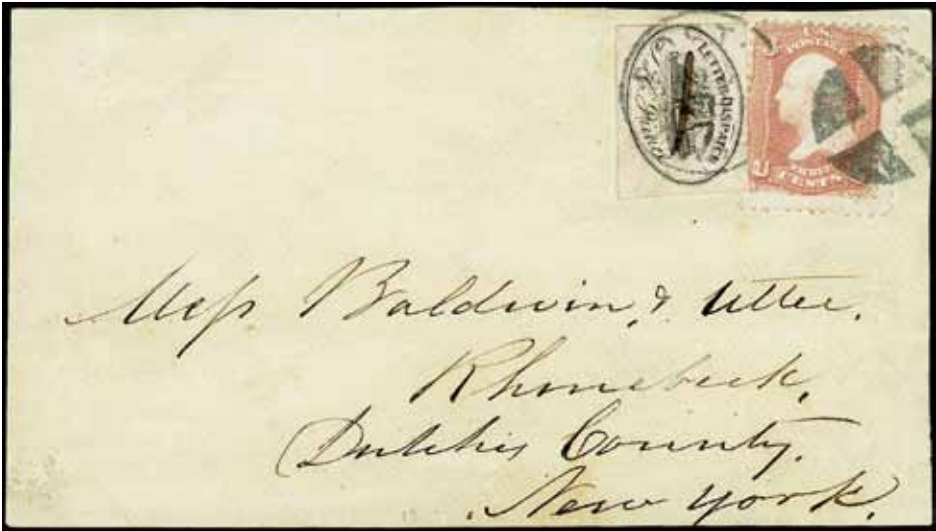 LETTER DISPATCH
U.S.
POSTAGE
THREE
CENTS
Mess Baldwin, & Utter,
Rhinebeck,
Dutchis County,
New York.